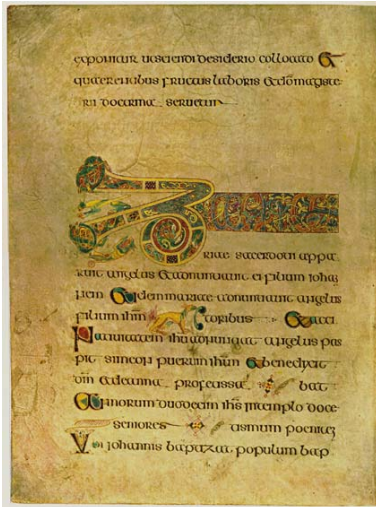 exponitur ut sciendi desiderio collocato &
quaerentibus fructus laboris & magiste
rii doctrinae seruetur
riae sacerdoti appa
ruit angelus & adnuntiauit ei filium iohan
nem & idem mariae adnuntiauit angelus
filium ihm toribus & acci
Natiuitatem ihu adnuntiat angelus pas
pit simeon puerum ihm & benedixit
dm & de anna professa bat
Annorum duodecim ihs in templo doce
seniores tismum poenitae
Ubi iohannis populum bap